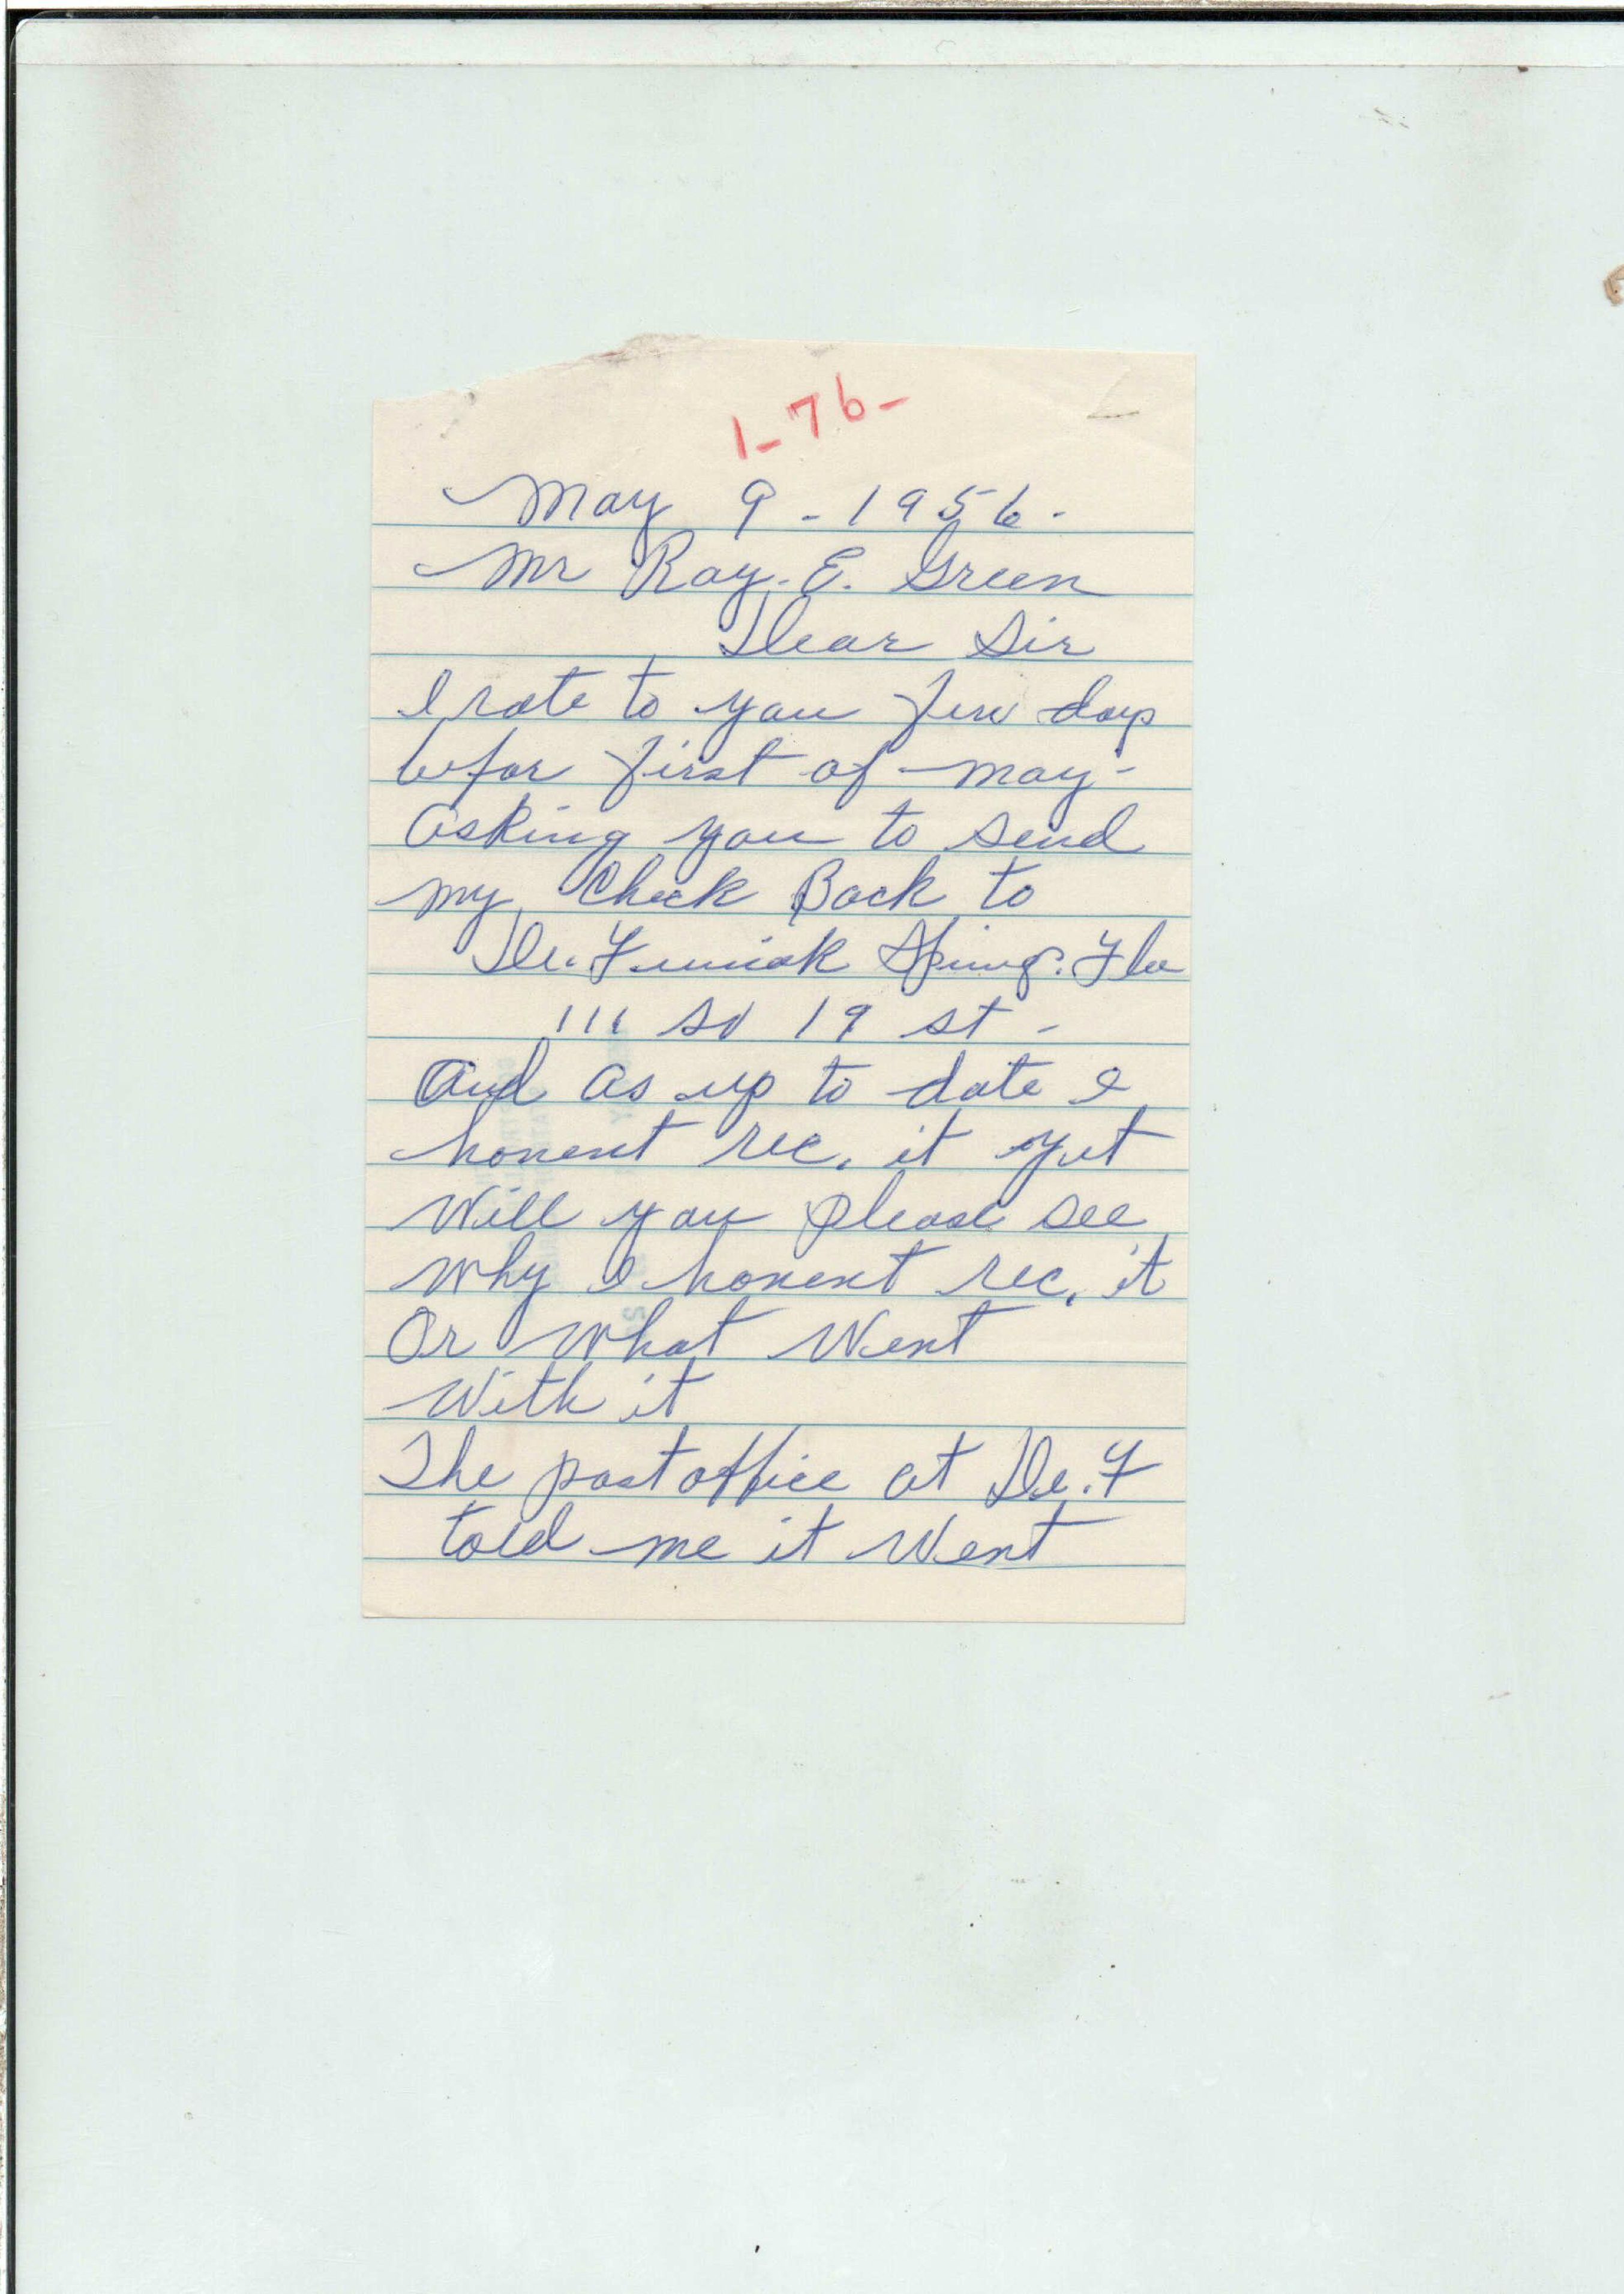 1-76-
May 9-1956-
Mr Ray. E. Green
Dear Sir
I rote to you few days
befor first of may-
asking you to send
my Check Back to
De. Funiak Springs. Fla
111 So 19 st-
And as up to date I
havent rec. it yet
Will you please see
why I havent rec. it
Or what Went
With it
The post office at De. F
told me it Went